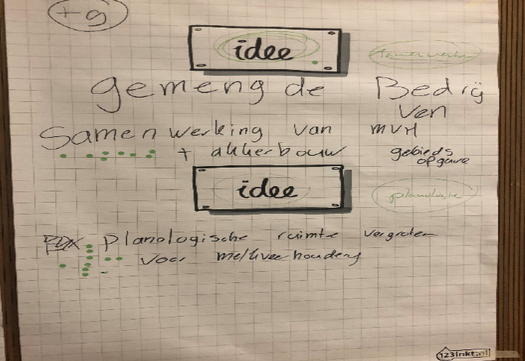 +9
idee
gemengde Bedrij
ven
Samenwerking van mvH
+ akkerbouw gebieds
opgave
idee
planologie
planologische ruimte vergroten
voor melkveehouderij
123inkt.nl